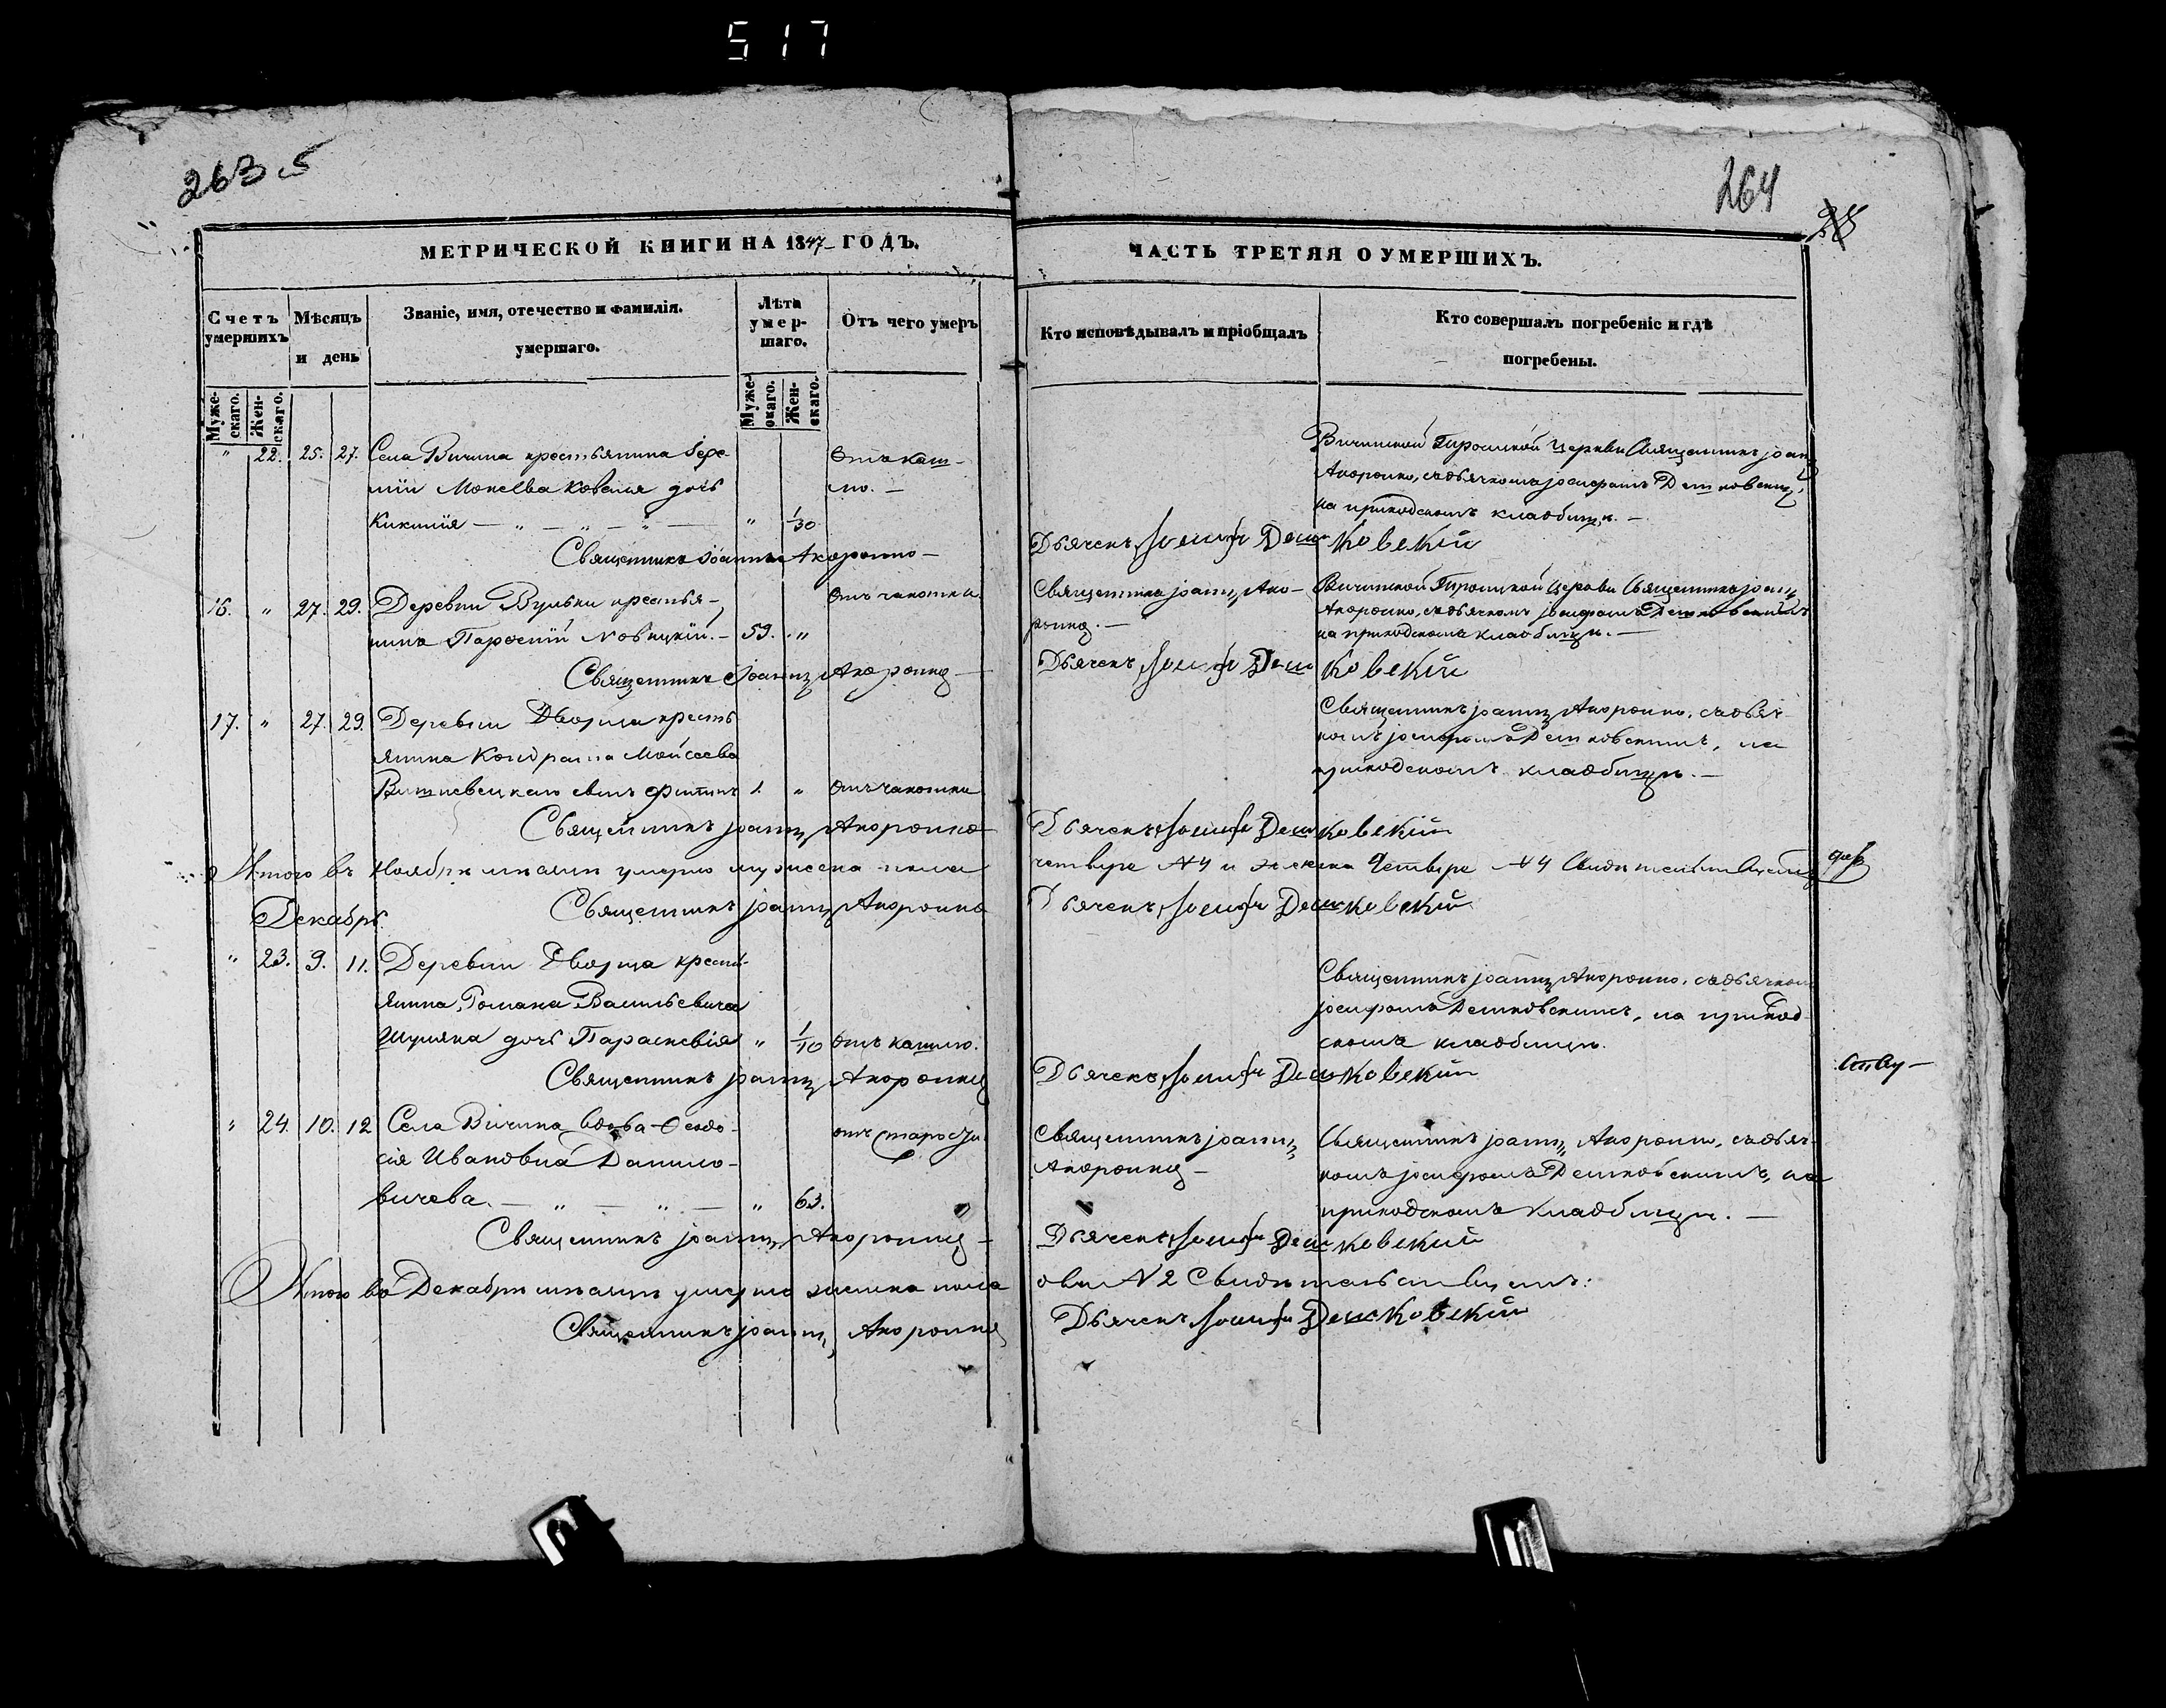 517
263.5
264
28
МЕТРИЧЕСКОЙ КНИГИ НА 1847 ГОДЪ.
ЧАСТЬ ТРЕТЯЯ О УМЕРШИХЪ.
Счетъ умершихъ
Мѣсяцъ и день
Званіе, имя, отечество и фамилія. умершаго.
Лѣта умершаго.
Отъ чего умеръ
Кто исповѣдывалъ и пріобщалъ
Кто совершалъ погребеніе и гдѣ погребены.
Мужескаго.
Женскаго.
Мужескаго.
Женскаго.
" 22. 25. 27. Села Вичина крестьянина Іере-
міи Ковеля дочь
" 1/30
Вичинской Троицкой Церкви Священникъ Іоаннъ
Акоронко, съ дьячкомъ Іосифомъ Дешковскимъ,
на приходскомъ кладбищѣ. —
Священникъ Іоаннъ Акоронко —
Дьячекъ Іосифъ Дешковскій
16. " 27. 29. Деревни Вульки крестья-
нинъ Новицкій. — 59. "
отъ чахотки
Священникъ Іоаннъ Ако-
ронко. —
Вичинской Троицкой Церкви Священникъ Іоаннъ
Акоронко, съ дьячкомъ Іосифомъ Дешковскимъ
на приходскомъ кладбищѣ. —
Священникъ Іоаннъ Акоронко —
Дьячекъ Іосифъ Дешковскій
17. " 27. 29. Деревни Дворца кресть
янина Кондрата Мойсеева
Вишневецкаго сынъ 1. " отъ чахотки
Священникъ Іоаннъ Акоронко, съ дьяч-
комъ Іосифомъ Дешковскимъ, на
приходскомъ кладбищѣ. —
Священникъ Іоаннъ Акоронко
Дьячекъ Іосифъ Дешковскій
Итого въ Ноябрѣ мѣсяцѣ умерло мужеска пола
четыре №4 и женска четыре №4
Священникъ Іоаннъ Акоронко
Дьячекъ Іосифъ Дешковскій
Декабрь.
" 23. 9. 11. Деревни Дворца кресть-
янина Романа Васильевича
Шуляка дочь Параскевія " 1/10 отъ кашлю.
Священникъ Іоаннъ Акоронко, съ дьячкомъ
Іосифомъ Дешковскимъ, на приход-
скомъ кладбищѣ.
Священникъ Іоаннъ Акоронко
Дьячекъ Іосифъ Дешковскій
" 24. 10. 12 Села Вичина вдова Ѳеодо-
сія Ивановна Данило-
вичева. — " — " — " 63.
отъ старости
Священникъ Іоаннъ
Акоронко —
Священникъ Іоаннъ Акоронко, съ дьяч-
комъ Іосифомъ Дешковскимъ, на
приходскомъ кладбищѣ. —
Священникъ Іоаннъ Акоронко —
Дьячекъ Іосифъ Дешковскій
Итого въ Декабрѣ мѣсяцѣ умерло женска пола
двѣ №2 Свидѣтельствуемъ:
Священникъ Іоаннъ Акоронко
Дьячекъ Іосифъ Дешковскій